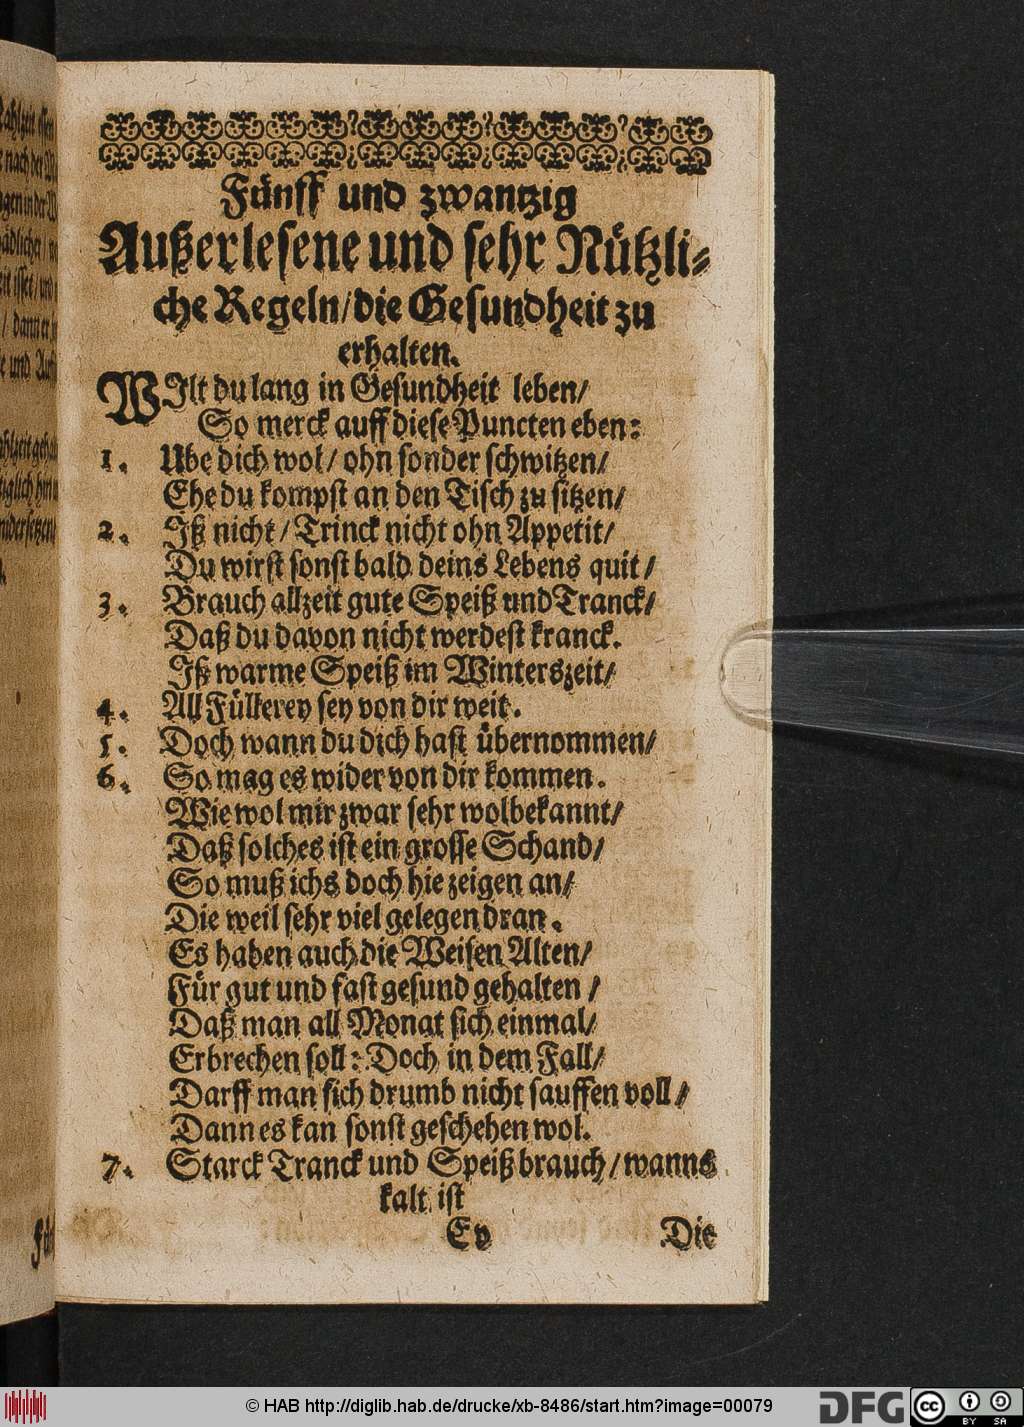 Fünff und zwantzig
Außerlesene und sehr Nützli⸗
che Regeln/die Gesundheit zu
erhalten.
WIlt du lang in Gesundheit leben/
So merck auff diese Puncten eben:
1. Ube dich wol/ ohn sonder schwitzen/
Ehe du kompst an den Tisch zu sitzen/
2. Iß nicht/ Trinck nicht ohn Appetit/
Du wirst sonst bald deins Lebens quit/
3. Brauch allzeit gute Speiß und Tranck/
Daß du davon nicht werdest kranck.
Iß warme Speiß im Winterszeit/
4. All Füllerey sey von dir weit.
5. Doch wann du dich hast übernommen/
6. So mag es wider von dir kommen.
Wie wol mir zwar sehr wolbekannt/
Daß solches ist ein grosse Schand/
So muß ichs doch hie zeigen an/
Die weil sehr viel gelegen dran.
Es haben auch die Weisen Alten/
Für gut und fast gesund gehalten/
Daß man all Monat sich einmal/
Erbrechen soll: Doch in dem Fall/
Darff man sich drumb nicht sauffen voll/
Dann es kan sonst geschehen wol.
7. Starck Tranck und Speiß brauch/ wanns
kalt ist
Ev Die
© HAB http://diglib.hab.de/drucke/xb-8486/start.htm?image=00079
DFG
cc BY SA